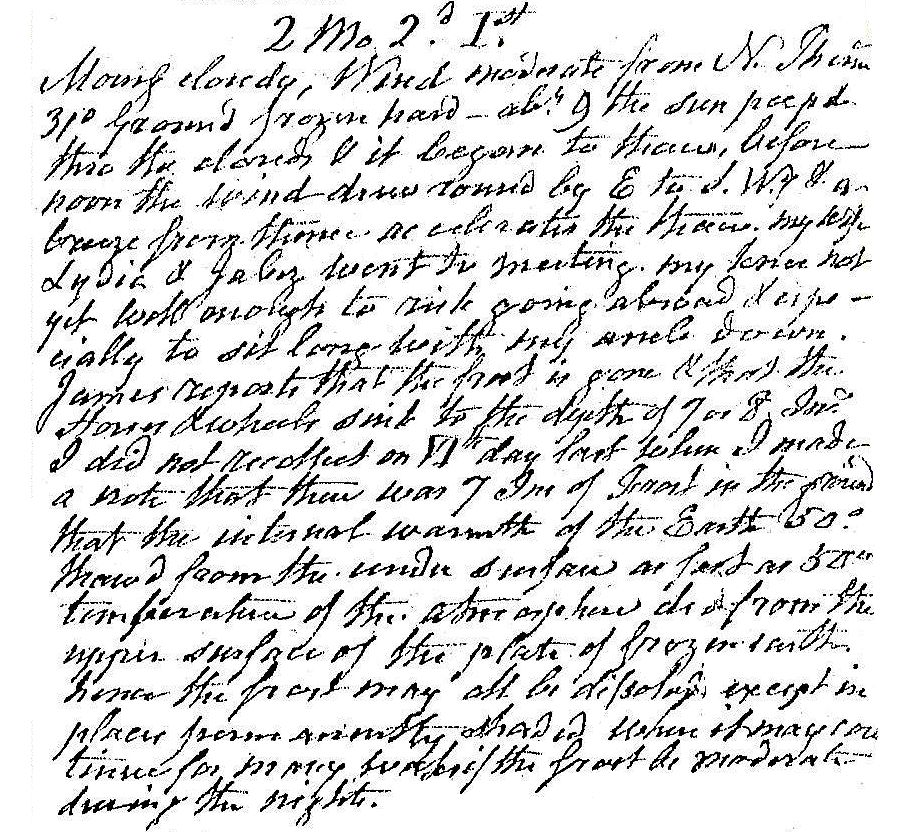 2 Mo 2.d I.st
Morng cloudy, Wind moderate from N. Therm
31º Ground frozen hard – abt 9 the sun peepd
thro the clouds & it began to thaw, before
noon the wind drew round by E to S.W. & a
breeze from thence accelerates the thaw. my wife
Lydia & Jabez went to meeting. my knee not
yet well enough to risk going abroad & espe-
cially to sit long with my ancle down.
James reports that the frost is gone & that the
Horses & wheels sink to the depth of 7 or 8 Ins.
I did not recollect on VIth day last when I made
a note that there was 7 Ins of Frost in the ground
that the internal warmth of the Earth 50º
thawd from the under surface as fast as 50º
temperature of the atmosphere did from the
upper surface of the plate of frozen earth.
hence the frost may all be disolvd except in
places permanently shaded where it may con
tinue for many weeks if the frost be moderate
during the nights.